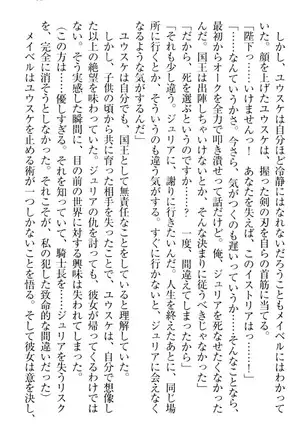 しかし、ユウスケは自分ほど冷静にはいられないだろうこともメイベルにはわかって
いた。顔を上げたユウスケは、握った剣の刃を自らの首筋に当てる。
「陛下っ……いけませんっ！　あなたを失えば、このイストリアは……っ」
「……なんていうかさ。今さら、気がつくのも遅いっていうか……そんなことなら、
最初からオークを全力で叩き潰せって話だけど。俺、ジュリアを死なせたくなかった
んだ。国王は出陣しちゃいけないとか、そんな決まりに従うべきじゃなかった」
「だから、死を選ぶというのですか？　一度、間違えてしまったから」
「それも少し違う。ジュリアに、謝りに行きたいんだ。人生を終えたあとに、同じ場
所に行くとか、そういうのも違う気がするんだけど。すぐに会いに行かないと、そう
なるような気がするんだ」
しかし、ユウスケは自分でも、国王として無責任なことをしていると理解していた。
けれど、子供の頃から共に育った相手を失ったことで、ユウスケは、自分で想像し
た以上の絶望を味わっていた。ジュリアの仇を討っても、彼女が帰ってくるわけでは
ない。そう実感した瞬間に、目の前の世界に対する興味は失われてしまった。
（この方は……優しすぎる。それを知っていて、騎士長を……ジュリアを失うリスク
を、完全に消そうとしなかった。それこそが、私の犯した致命的な間違いだった）
メイベルはユウスケを止める術が一つしかないことを悟る。そして彼女は意を決し、